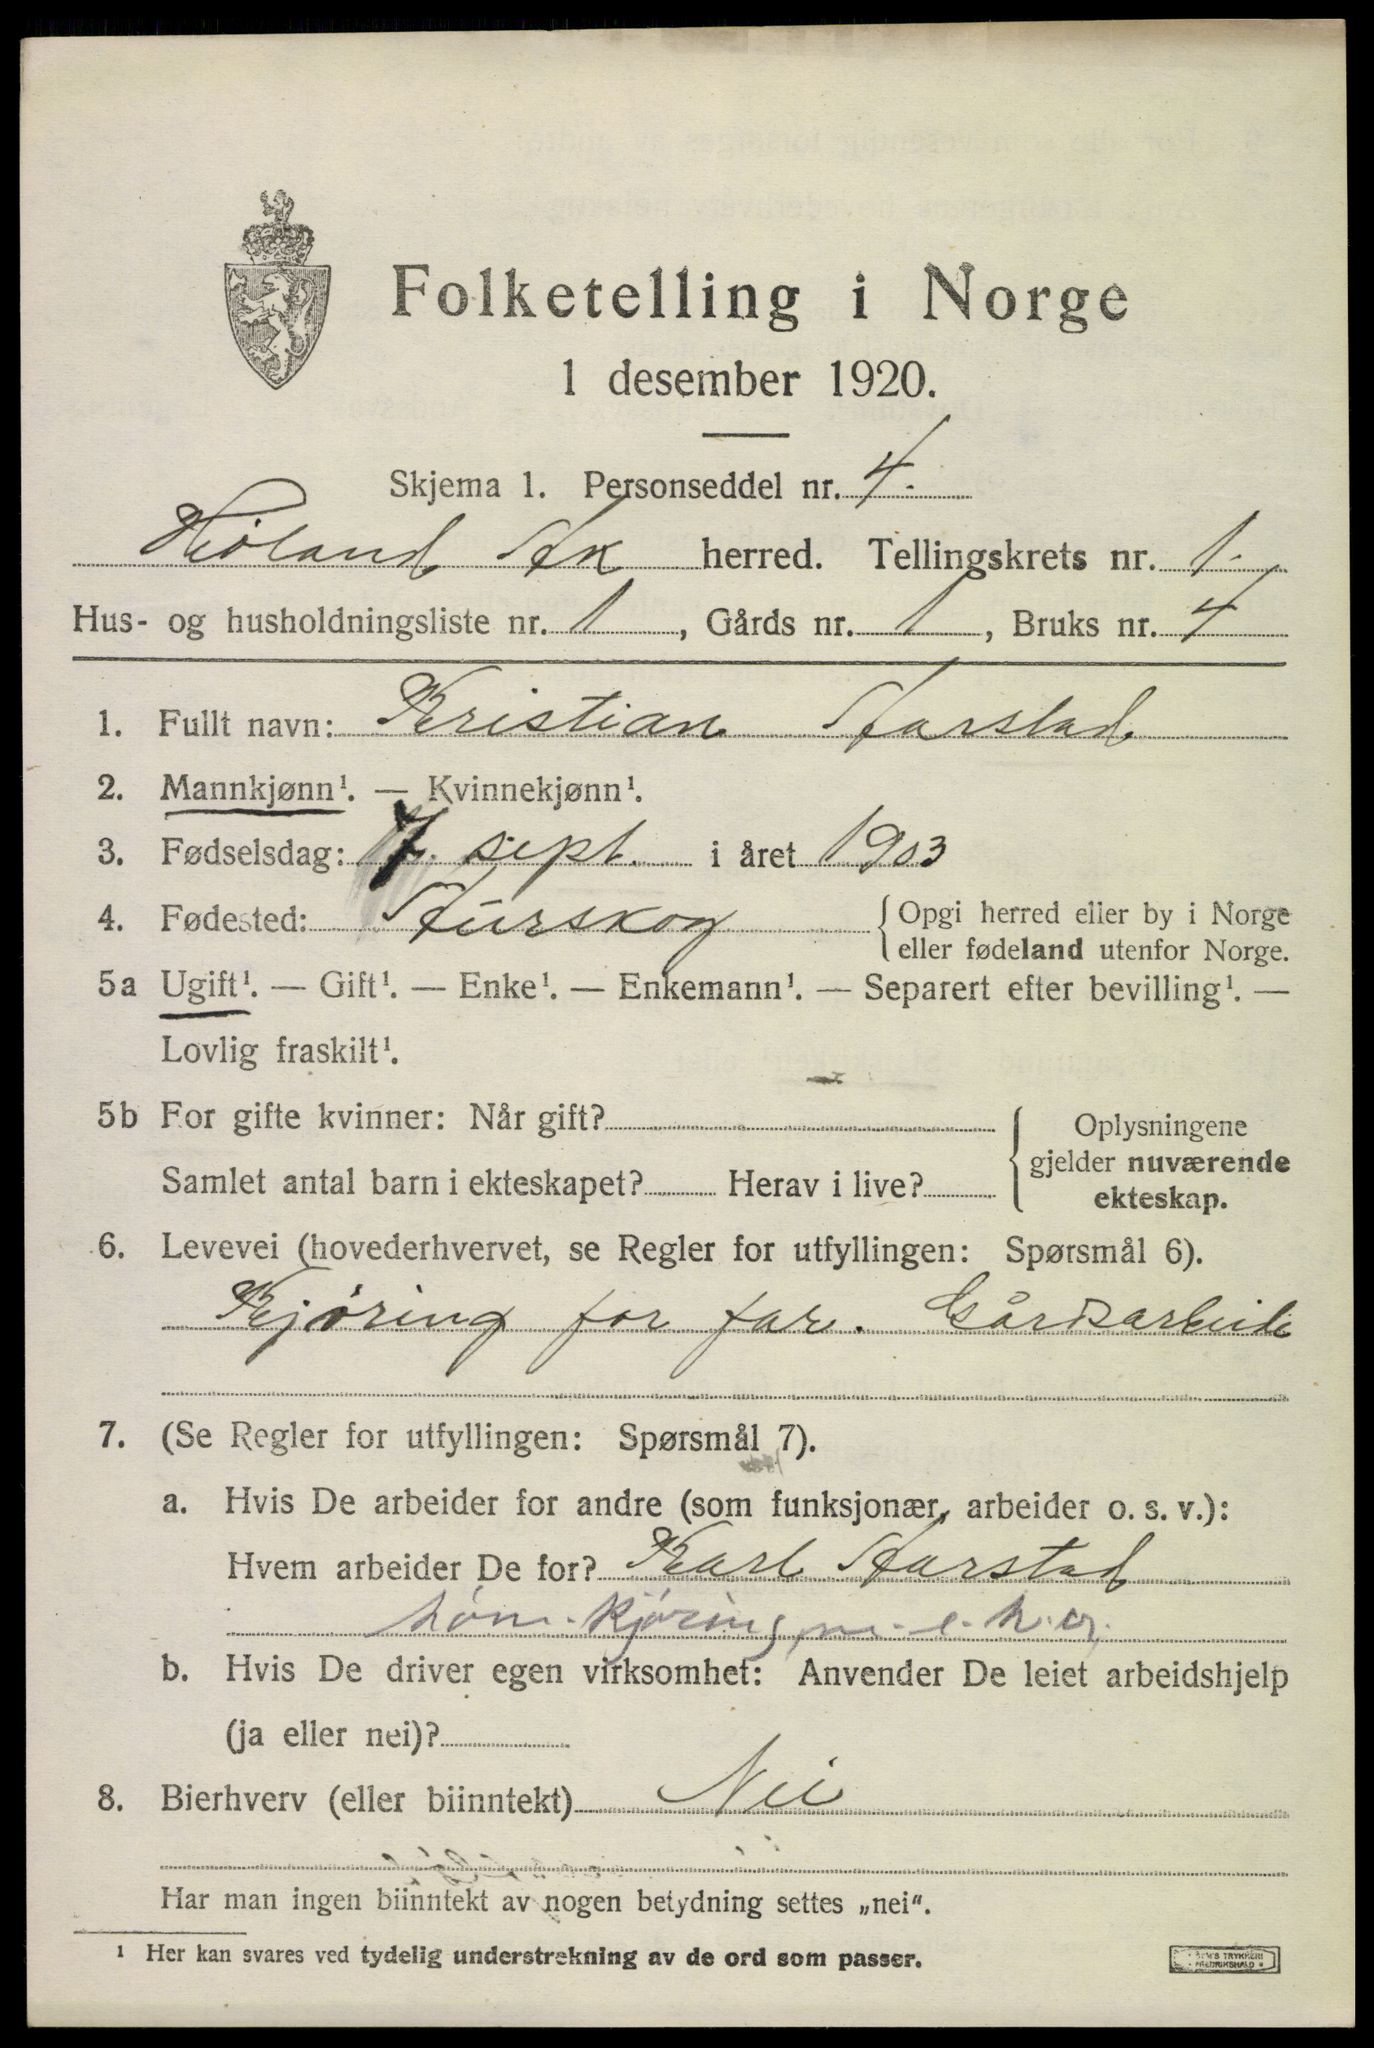 Folketelling i Norge
1 desember 1920.
Skjema 1. Personseddel nr. 4.
Høland Ak herred. Tellingskrets nr. 1.
Hus- og husholdningsliste nr. 1, Gårds nr. 1, Bruks nr. 4
1. Fullt navn: Kristian Harstad
2. Mannkjønn¹. — Kvinnekjønn¹.
3. Fødselsdag: 7. sept. i året 1903
4. Fødested: Aurskog { Opgi herred eller by i Norge
eller fødeland utenfor Norge.
5a Ugift¹. — Gift¹. — Enke¹. — Enkemann¹. — Separert efter bevilling¹. —
Lovlig fraskilt¹.
5b For gifte kvinner: Når gift?
Samlet antal barn i ekteskapet? Herav i live?
{ Oplysningene
gjelder nuværende
ekteskap.
6. Levevei (hovederhvervet, se Regler for utfyllingen: Spørsmål 6).
Kjøring for far. Gårdsarbeide
7. (Se Regler for utfyllingen: Spørsmål 7).
a. Hvis De arbeider for andre (som funksjonær, arbeider o. s. v.):
Hvem arbeider De for? Karl Harstad
kjøring m. e. h.
b. Hvis De driver egen virksomhet: Anvender De leiet arbeidshjelp
(ja eller nei)?
8. Bierhverv (eller biinntekt) Nei
Har man ingen biinntekt av nogen betydning settes „nei“.
¹ Her kan svares ved tydelig understrekning av de ord som passer.
TRYKKERI
FREDRIKSHALD